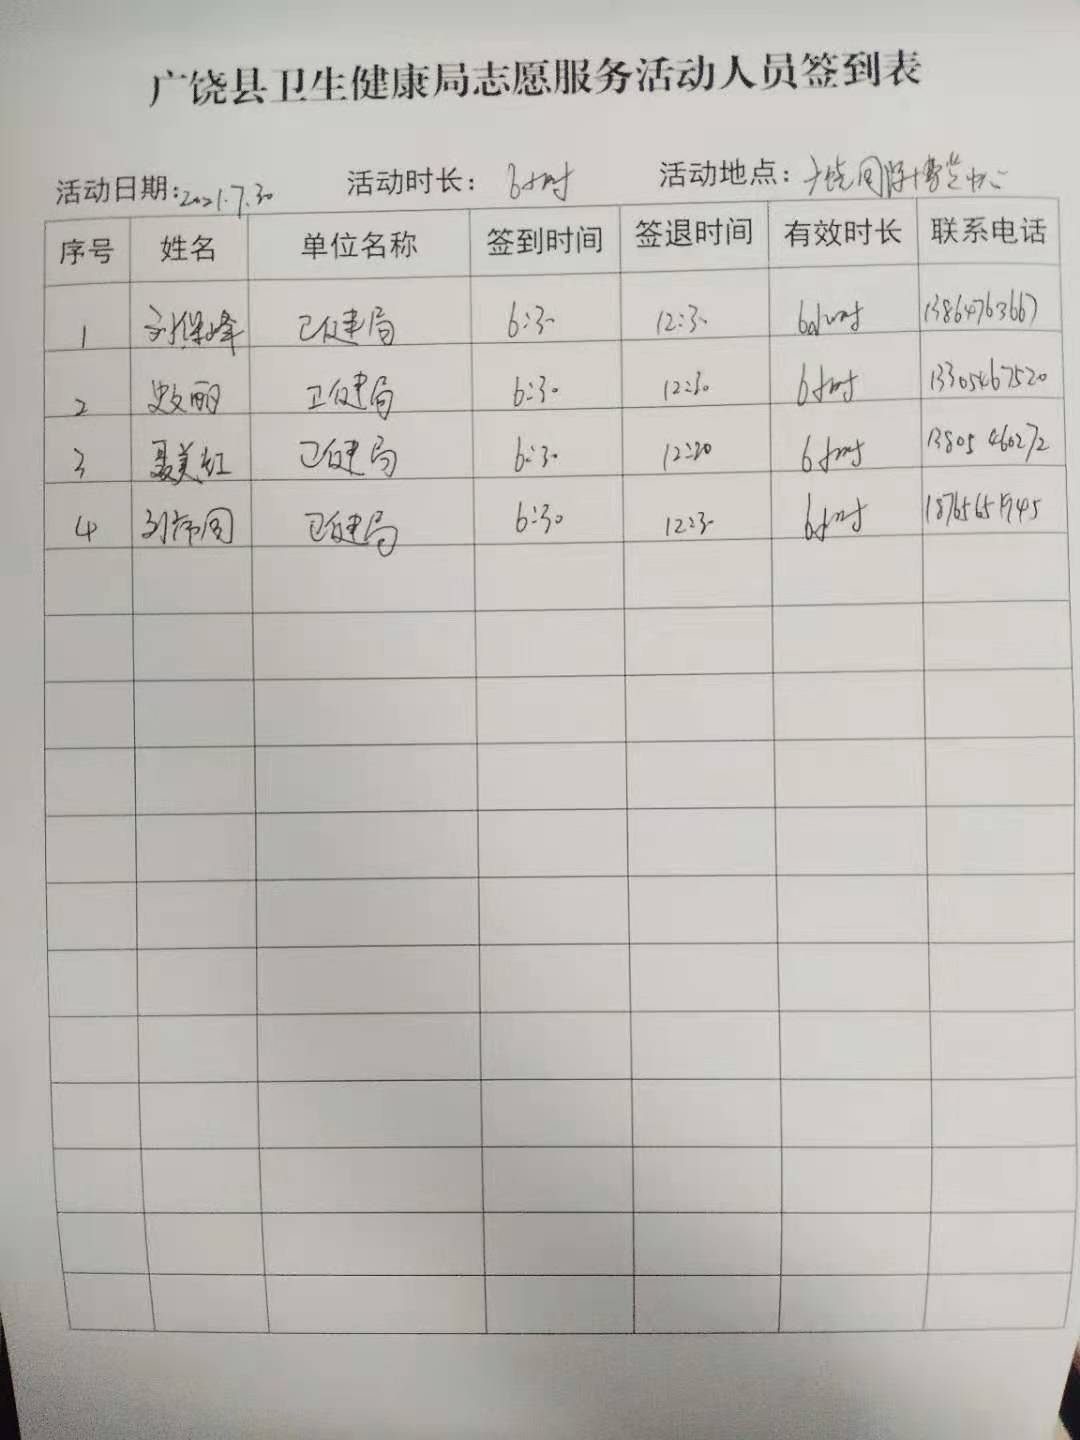 广饶县卫生健康局志愿服务活动人员签到表
活动日期:2021.7.30 活动时长:6小时 活动地点:广饶国际博览中心
序号 姓名 单位名称 签到时间 签退时间 有效时长 联系电话
1 刘保峰 卫健局 6:30 12:30 6小时 13864763667
2 丽 卫健局 6:30 12:30 6小时 13305467520
3 聂美红 卫健局 6:30 12:30 6小时 13805460272
4 刘 卫健局 6:30 12:30 6小时